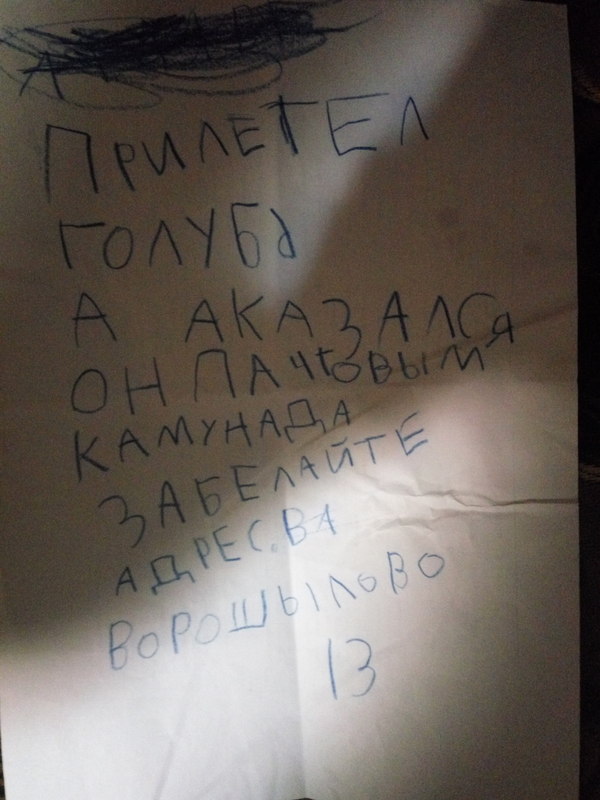 ПРИЛЕТЕЛ
ГОЛУБЬ
А АКАЗАЛСЯ
ОН ПАЧТОВЫМ
КАМУНАДА
ЗАБЕЛАЙТЕ
АДРЕС.ВА
ВОРОШЫЛОВО
13